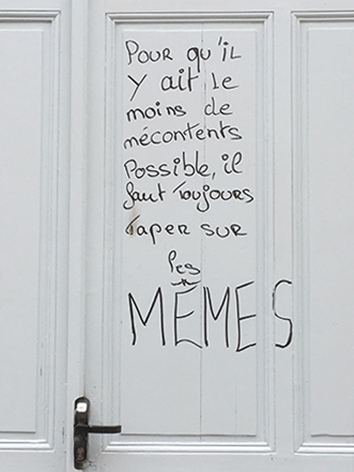 Pour qu'il
Y ait le
moins de
mécontents
Possible, il
faut Toujours
Taper sur
les
MÊMES